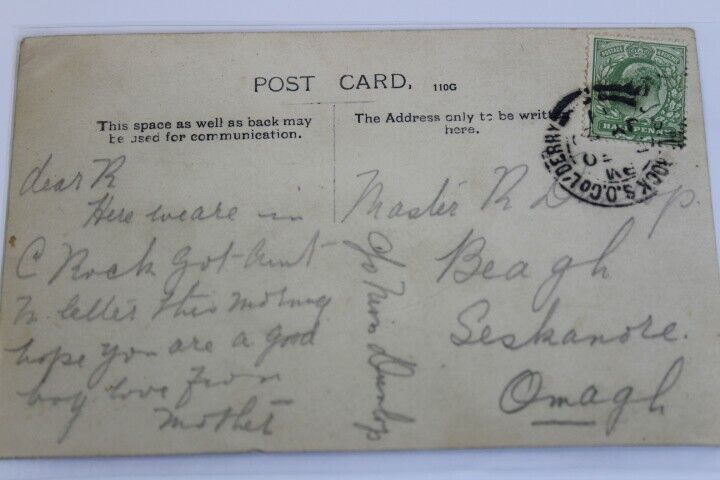 POST CARD.
110G
This space as well as back may
be used for communication.
The Address only to be written
here.
HALF PENNY
ROCK S.O. CO L'DERRY
PM
dear R
Here we are in
C Rock got Aunt
letter this morning
hope you are a good
boy love from
Mother
Master R Dunlop.
Beagh
Seskanore.
Omagh
c/o Dunlop